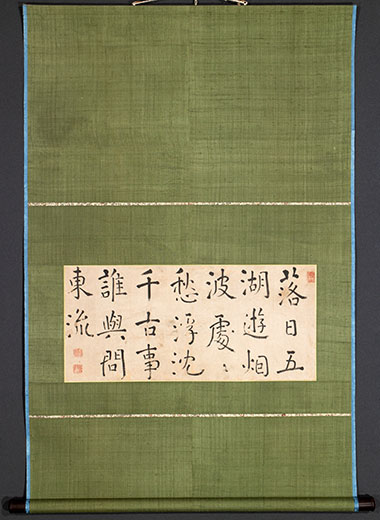 落日五
湖遊烟
波處〻
愁浮沈
千古事
誰與問
東流